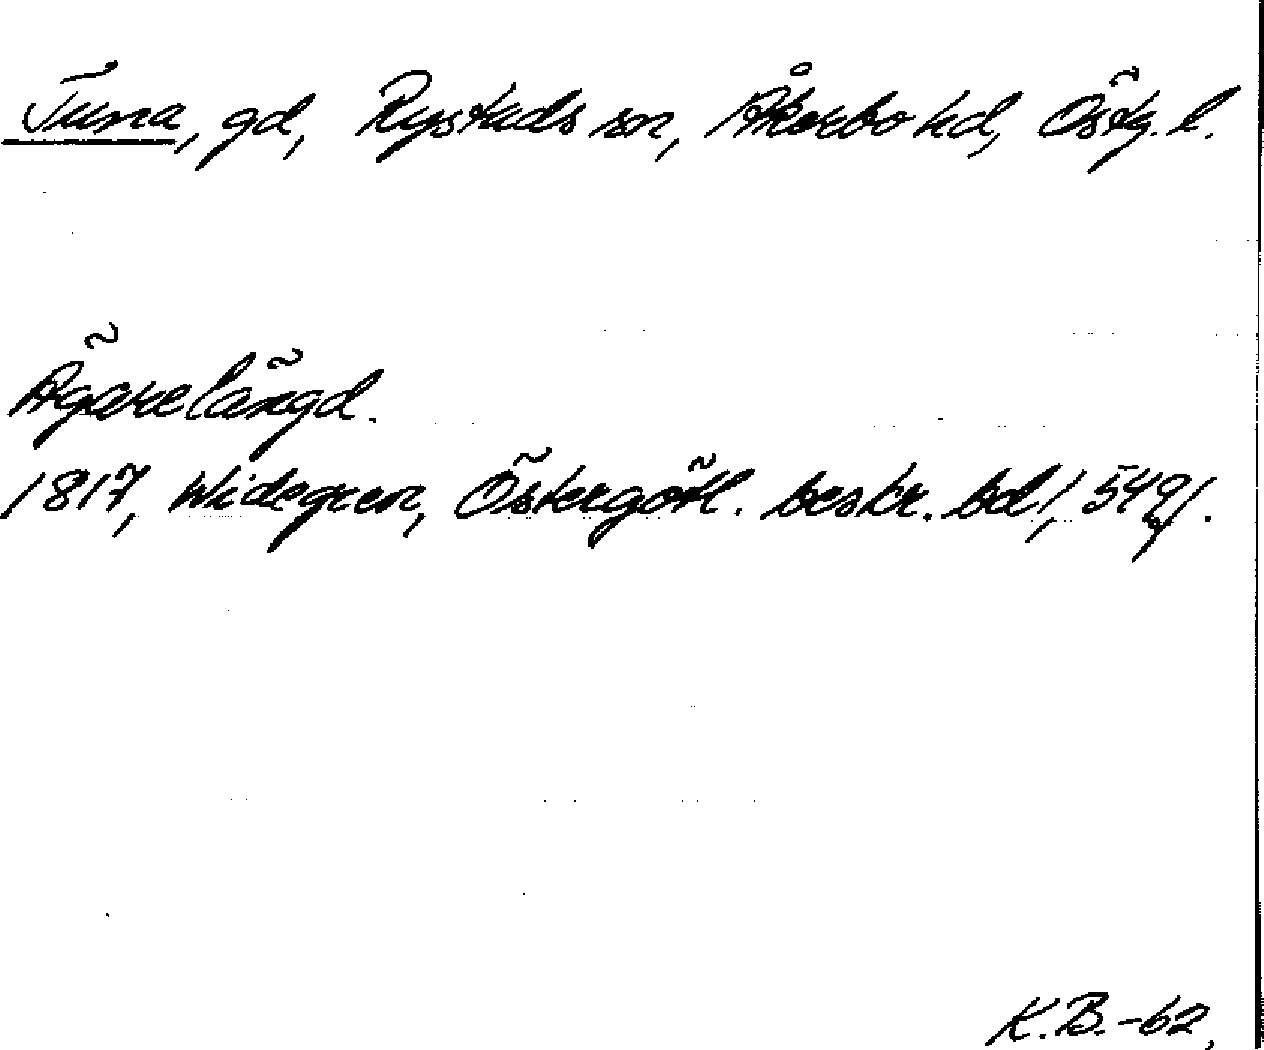 Tuna, gd, Rystads sn, Åkerbo hd, Östg. l.
Ägarelängd.
1817, Widegren, Östergötl. beskr. bd 1, 549f.
K.B.-62.